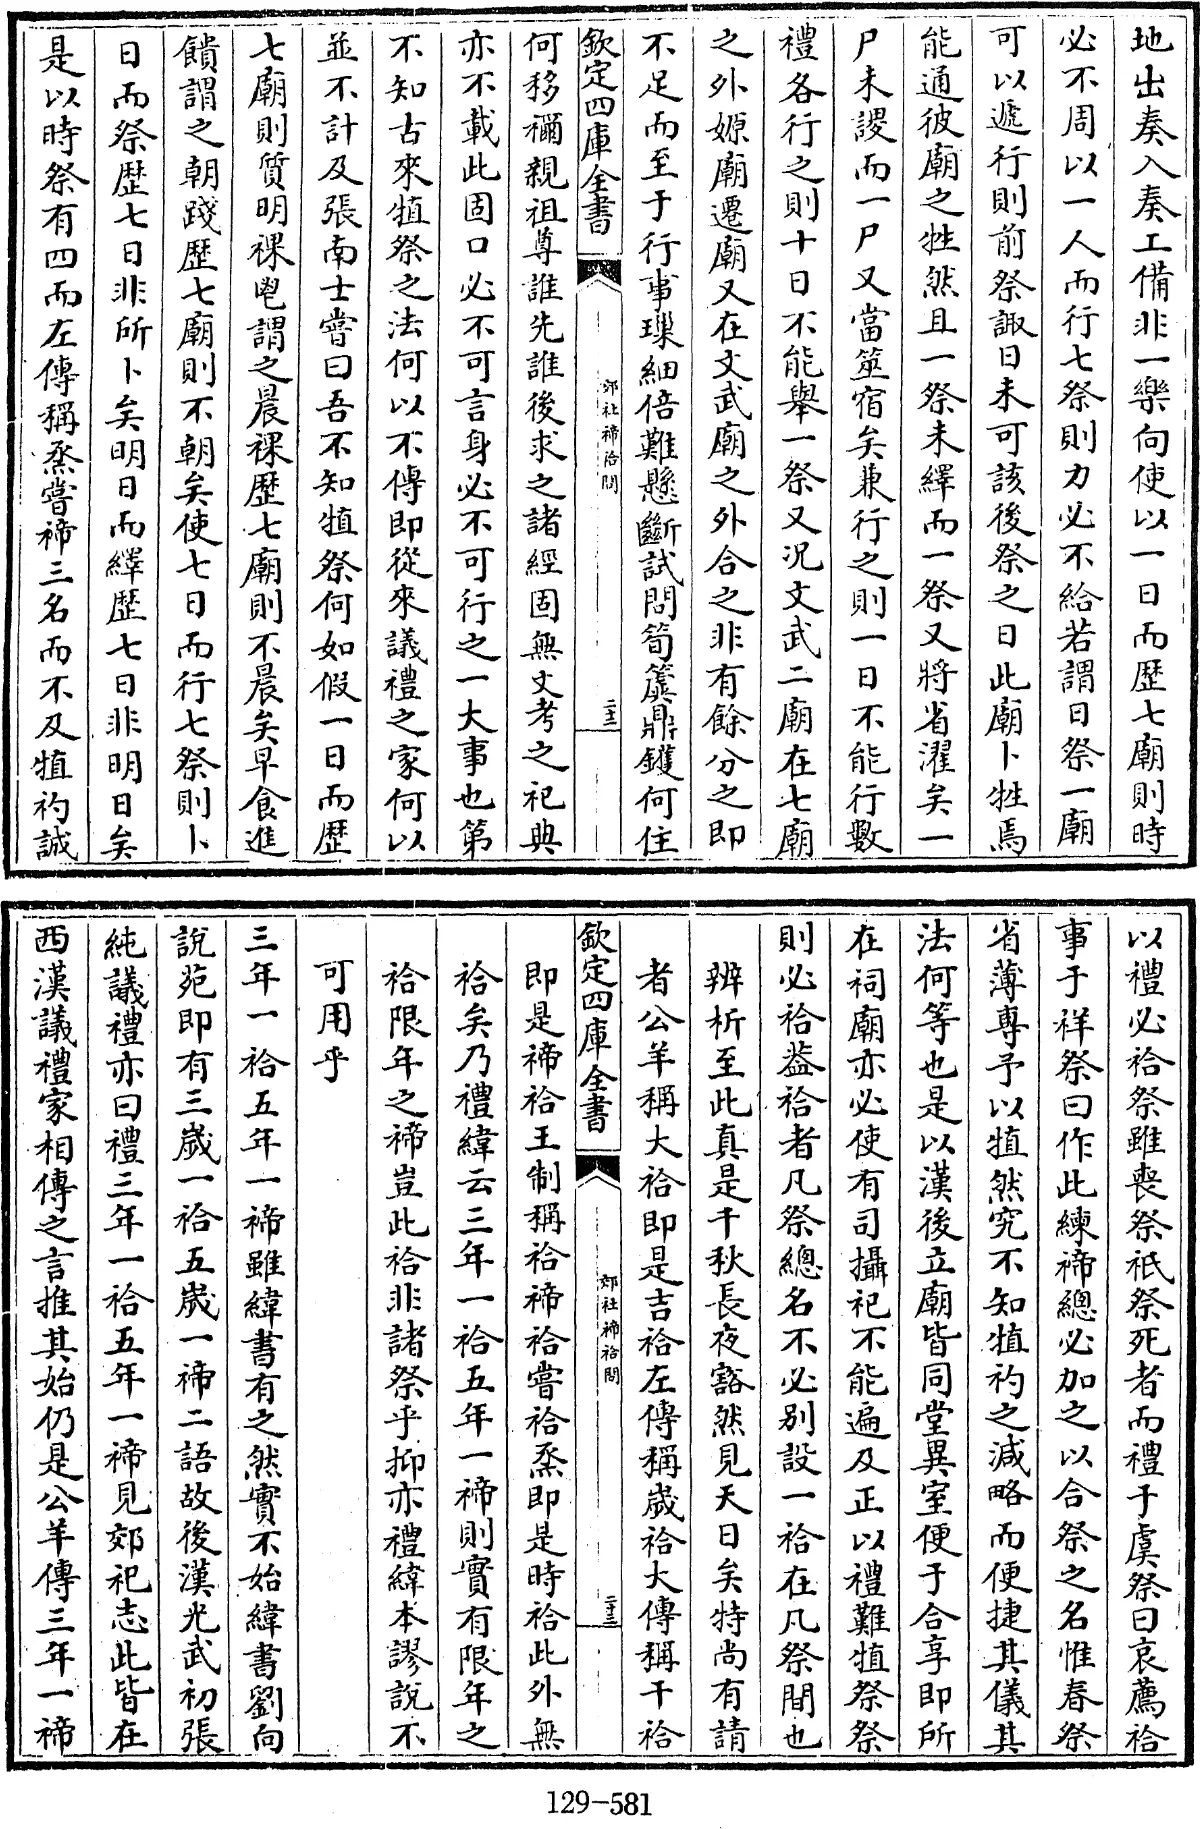 地出奏入奏工備非一樂向使以一日而歷七廟則時
必不周以一人而行七祭則力必不給若謂日祭一廟
可以遞行則前祭諏日未可該後祭之日此廟卜牲焉
能通彼廟之牲然且一祭未繹而一祭又將省濯矣一
尸未謖而一尸又當筮宿矣兼行之則一日不能行數
禮各行之則十日不能舉一祭又况文武二廟在七廟
之外嫄廟遷廟又在文武廟之外合之非有餘分之即
不足而至于行事瑣細倍難懸斷試問筍簴鼎鑊何住
欽定四庫全書
郊社禘祫問
二十三
何移禰親祖尊誰先誰後求之諸經固無文考之祀典
亦不載此固口必不可言身必不可行之一大事也第
不知古來犆祭之法何以不傳即從來議禮之家何以
並不計及張南士嘗曰吾不知犆祭何如假一日而歷
七廟則質明祼鬯謂之晨祼歷七廟則不晨矣早食進
饋謂之朝踐歷七廟則不朝矣使七日而行七祭則卜
日而祭歷七日非所卜矣明日而繹歷七日非明日矣
是以時祭有四而左傳稱烝嘗禘三名而不及犆礿誠
以禮必祫祭雖喪祭祇祭死者而禮于虞祭曰哀薦祫
事于祥祭曰作此練禘總必加之以合祭之名惟春祭
省薄專予以犆然究不知犆礿之減略而便捷其儀其
法何等也是以漢後立廟皆同堂異室便于合享即所
在祠廟亦必使有司攝祀不能遍及正以禮難犆祭祭
則必祫葢祫者凡祭總名不必別設一祫在凡祭間也
辨析至此真是千秋長夜豁然見天日矣特尚有請
者公羊稱大祫即是吉祫左傳稱歲祫大傳稱干祫
欽定四庫全書
郊社禘祫問
二十三
即是禘祫王制稱祫禘祫嘗祫烝即是時祫此外無
祫矣乃禮緯云三年一祫五年一禘則實有限年之
祫限年之禘豈此祫非諸祭乎抑亦禮緯本謬說不
可用乎
三年一祫五年一禘雖緯書有之然實不始緯書劉向
說苑即有三歲一祫五歲一禘二語故後漢光武初張
純議禮亦曰禮三年一祫五年一禘見郊祀志此皆在
西漢議禮家相傳之言推其始仍是公羊傳三年一禘
129-581